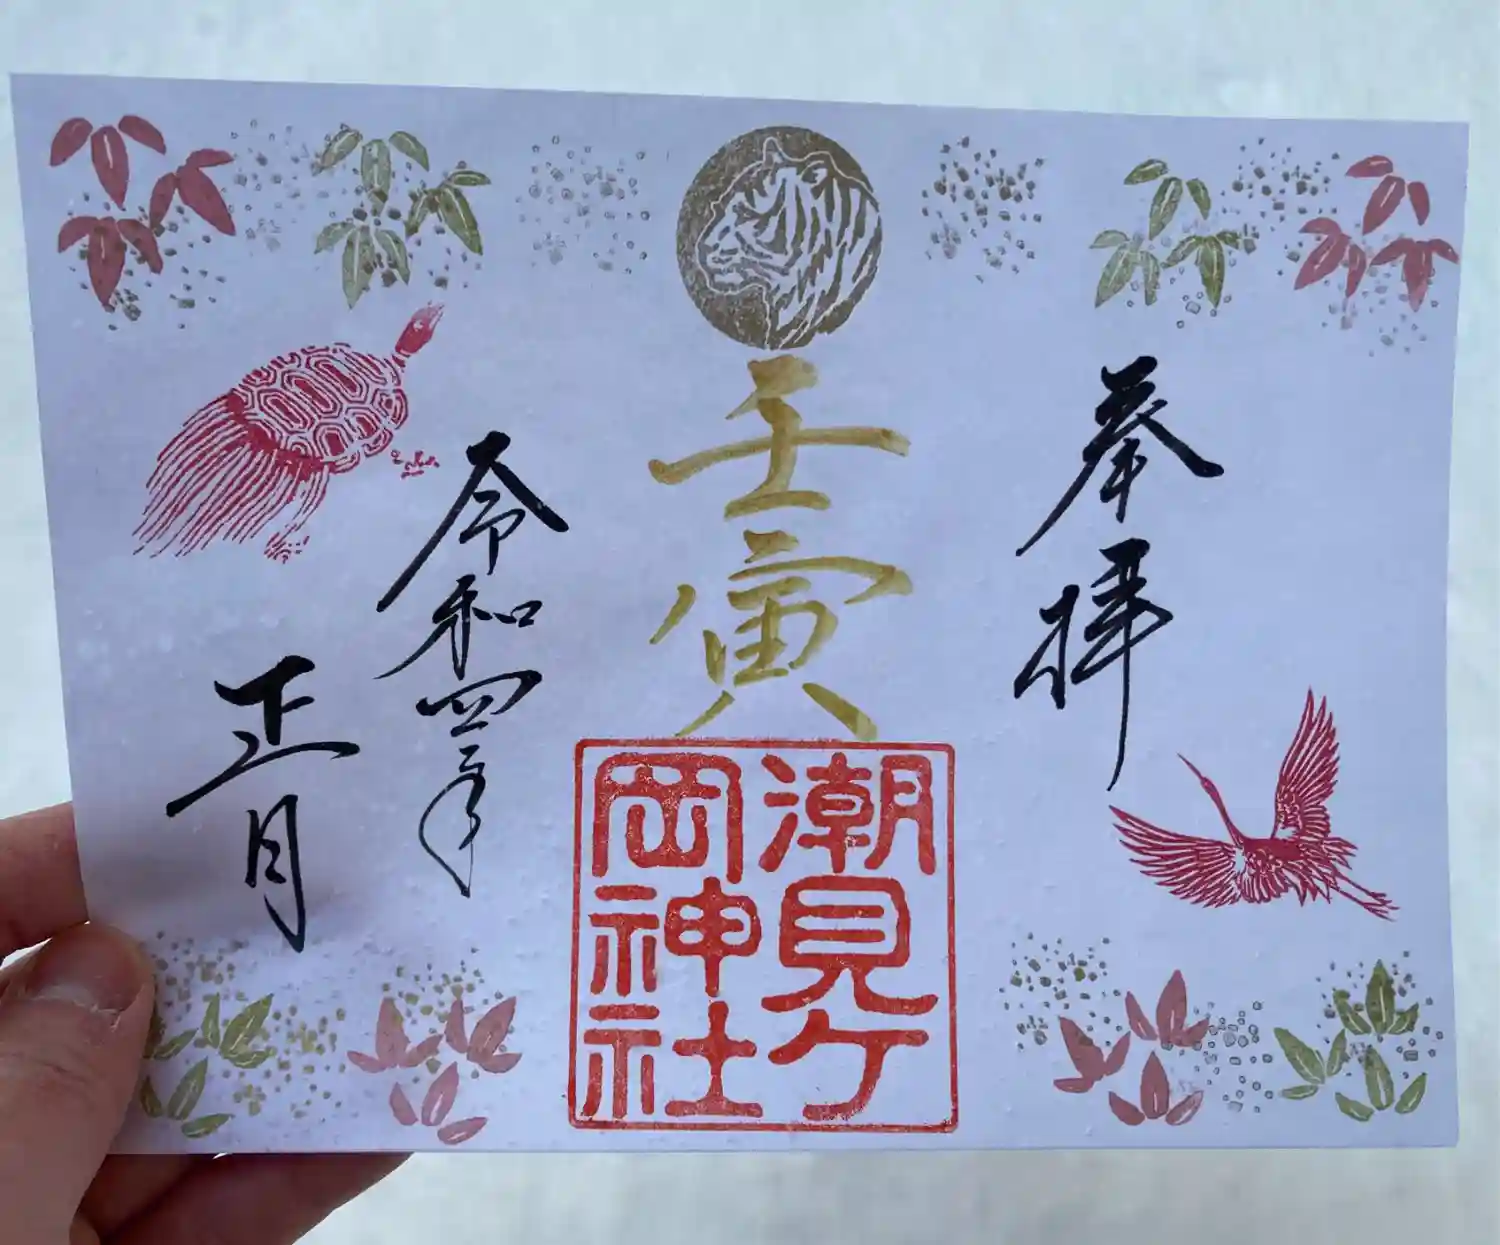 奉拝
壬寅
潮見ケ
岡神社
令和四年
正月